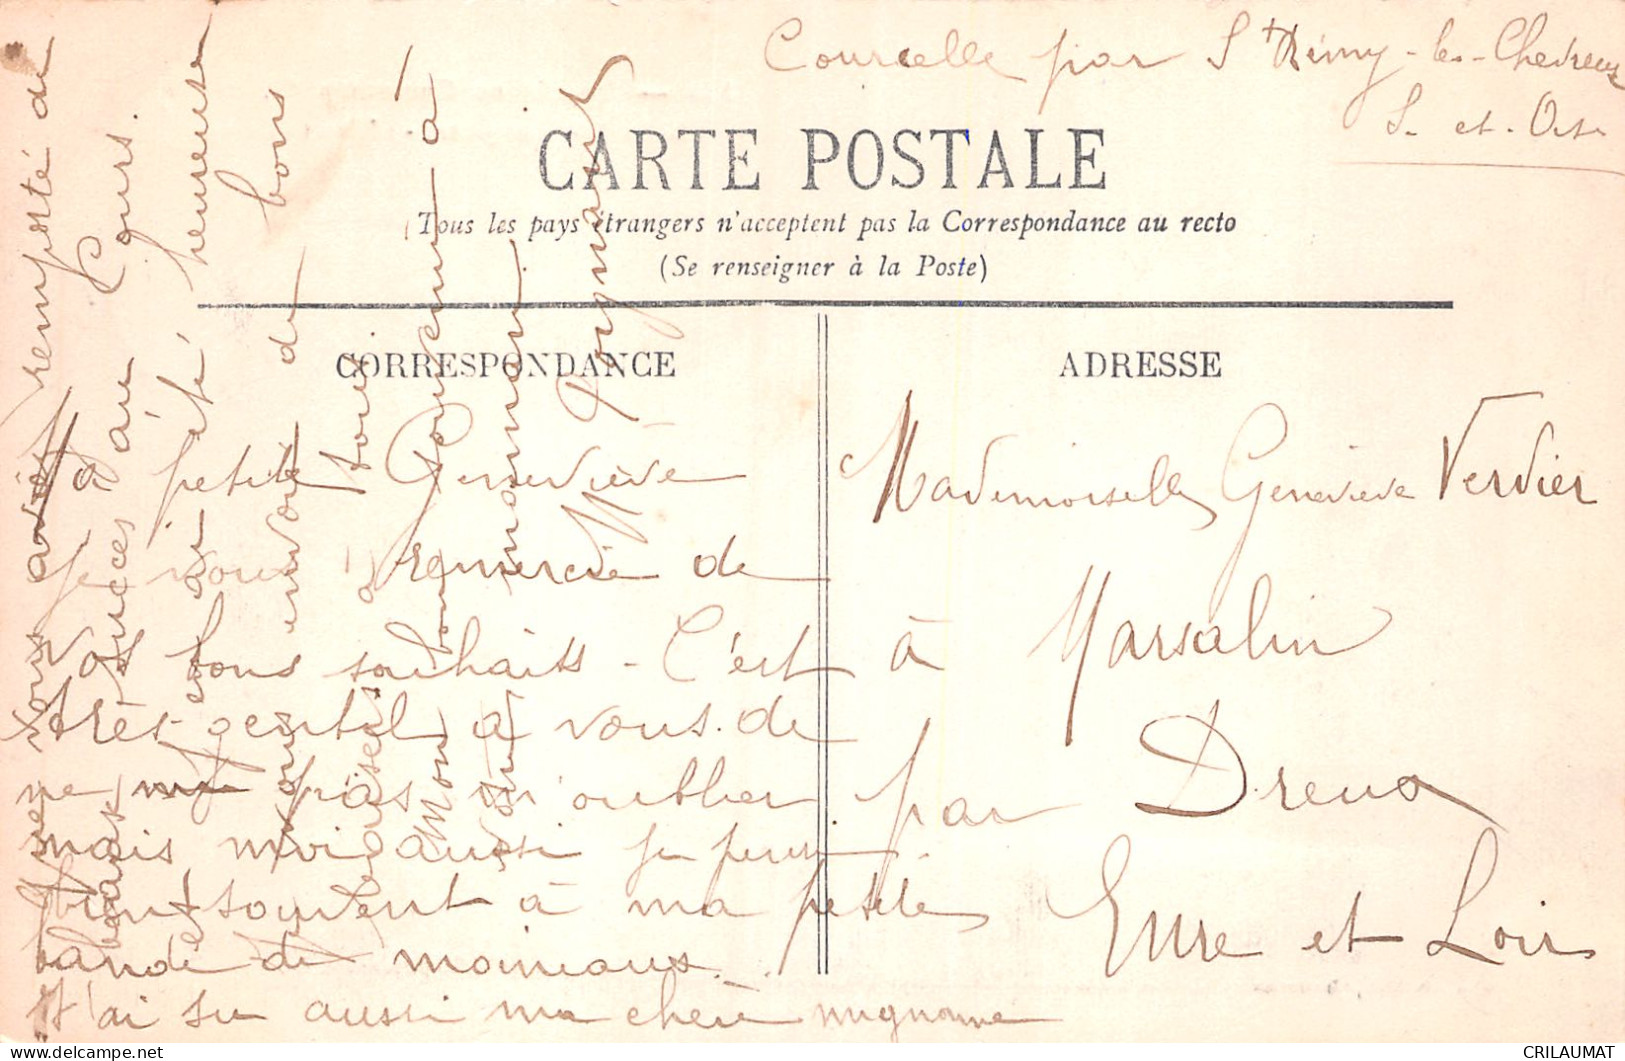 Courcelle par St Rémy-les-Chevreuse
S. et. Oise
CARTE POSTALE
Tous les pays étrangers n'acceptent pas la Correspondance au recto
(Se renseigner à la Poste)
CORRESPONDANCE
Ma petite Geneviève
Je vous remercie de
vos bons souhaits - C'est
très gentil à vous. de
ne pas m'oublier
mais moi aussi je pense
bien souvent à ma petite
bande de moineaux.
J'ai su aussi ma chère mignonne
que vous aviez remporté de
beaux succès au Cours.
Et j'en ai été heureuse
Je vous envoie de bons
baisers à tous
mon bon souvenir à
votre maman.
M Pognard
ADRESSE
Mademoiselle Geneviève Verdier
à Marsalin
par Dreux
Eure et Loir
CRILAUMAT